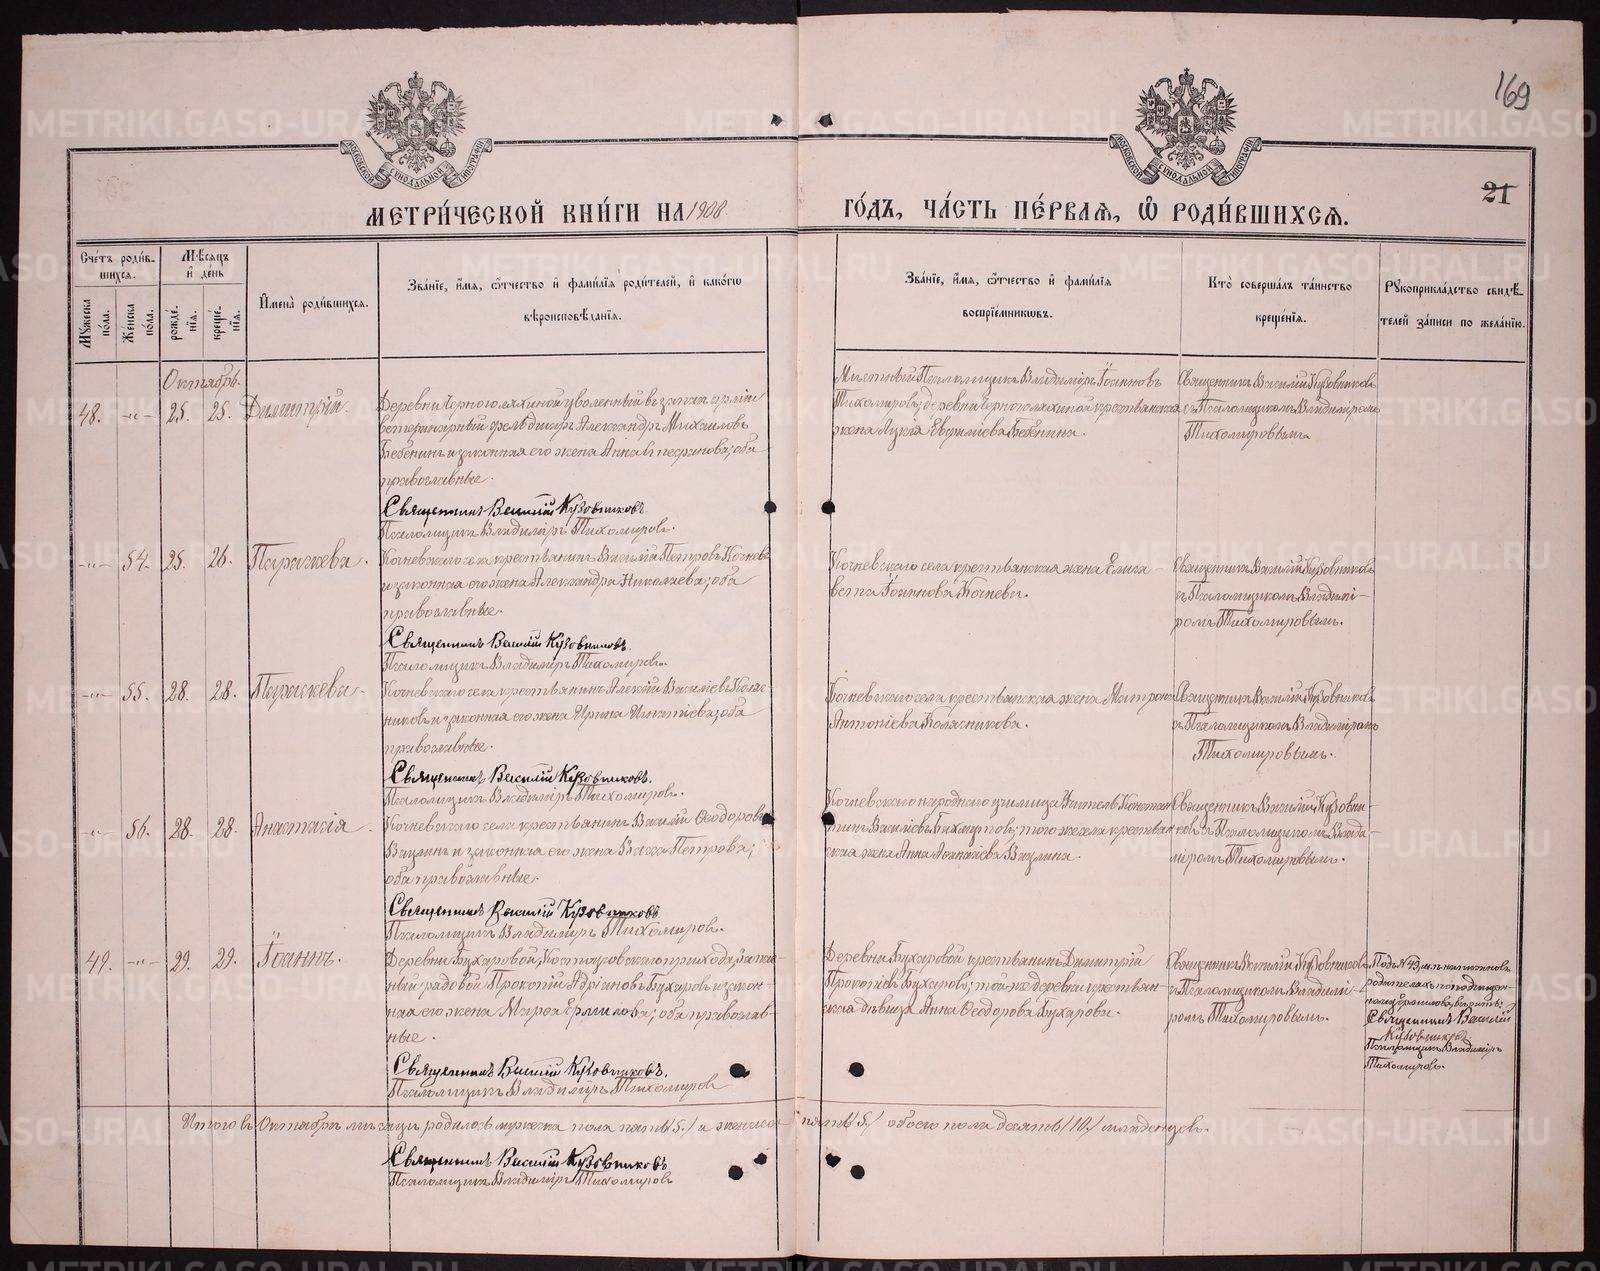 169
МОСКОВСКОЙ СѴНОДАЛЬНОЙ ТИПОГРАФІИ
МОСКОВСКОЙ СѴНОДАЛЬНОЙ ТИПОГРАФІИ
21
МЕТРИ́ЧЕСКОЙ КНИ́ГИ НА 1908
ГО́ДЪ, ЧА́СТЬ ПЕ́РВАЯ, Ѽ РОДИ́ВШИХСЯ.
Сче́тъ роди́в-
шихся.
Мꙋ́жеска по́ла.
Же́нска по́ла.
Мѣ́сяцъ
и҆ де́нь
рожде́-
нїя.
креще́-
нїя.
И҆мена̀ роди́вшихся.
Зва́нїе, и҆́мя, ѻ҆́тчество и҆ фами́лїя роди́телей, и҆ како́гѡ
вѣроисповѣ́данїя.
Зва́нїе, и҆́мя, ѻ҆́тчество и҆ фами́лїя
воспрїе́мникѡвъ.
Кто̀ соверша́лъ та́инство
креще́нїя.
Рꙋкоприкла́дство свидѣ́-
телей за́писи по жела́нїю.
Октябрь.
48. -„- 25. 25. Димитрій.
Деревни Черноголяхиной уволенный въ запас арміи
ветеринарный фельдшеръ Александръ Михаиловъ
Бебенинъ и законная его жена Анна; оба
православные.
Священникъ Василій Кузовниковъ.
Псаломщикъ Владиміръ Тихомировъ.
Местный Псаломщикъ Владиміръ Іоанновъ
Тихомировъ; деревни крестьянская
жена Лукія Евфиміева Бебенина.
Священникъ Василій Кузовниковъ
съ Псаломщикомъ Владиміромъ
Тихомировымъ.
-„- 54. 25. 26. Параскева.
Кочневскаго села крестьянинъ Василій Петровъ Кочневъ
и законная его жена Александра Николаева; оба
православные.
Священникъ Василій Кузовниковъ.
Псаломщикъ Владиміръ Тихомировъ.
Кочневскаго села крестьянская жена Елиса-
вета Іоаннова Кочнева.
Священникъ Василій Кузовниковъ
съ Псаломщикомъ Владимі-
ромъ Тихомировымъ.
-„- 55. 28. 28. Параскева.
Кочневскаго села крестьянинъ Алексій Василіевъ Коляс-
никовъ и законная его жена Ирина Игнатіева; оба
православные.
Священникъ Василій Кузовниковъ.
Псаломщикъ Владиміръ Тихомировъ.
Кочневскаго села крестьянская жена Матрона
Антоніева Колясникова.
Священникъ Василій Кузовниковъ
съ Псаломщикомъ Владиміромъ
Тихомировымъ.
-„- 56. 28. 28. Анастасія.
Кочневскаго села крестьянинъ Василій Ѳеодоровъ
Вацлинъ и законная его жена Васса Петрова;
оба православные.
Священникъ Василій Кузовниковъ
Псаломщикъ Владиміръ Тихомировъ.
Кочневскаго народнаго училища Учитель Констан-
тинъ Василіевъ; того же села крестьян-
ская жена Анна Аѳанасіева Вацлина.
Священникъ Василій Кузовни-
ковъ съ Псаломщикомъ Влади-
міромъ Тихомировымъ.
49. -„- 29. 29. Іоаннъ.
Деревни Бухаровой, прихода, запас-
ный рядовой Прокопій Адріановъ Бухаровъ и закон-
ная его жена Марѳа Ермилова; оба православ-
ные.
Священникъ Василій Кузовниковъ.
Псаломщикъ Владиміръ Тихомировъ
Деревни Бухаровой крестьянинъ Димитрій
Прокопіевъ Бухаровъ; той же деревни крестьян-
ская девица Анна Ѳеодорова Бухарова.
Священникъ Василій Кузовниковъ
съ Псаломщикомъ Владимі-
ромъ Тихомировымъ.
Подъ № 49,
родителяхъ
Священникъ Василій
Кузовниковъ
Псаломщикъ Владиміръ
Тихомировъ.
Итого въ Октябрѣ мѣсяцѣ родилось мужеска пола пять /5./ и женска пять /5./ обоего пола десять /10./ младенцевъ.
Священникъ Василій Кузовниковъ
Псаломщикъ Владиміръ Тихомировъ
METRIKI.GASO-URAL.RU